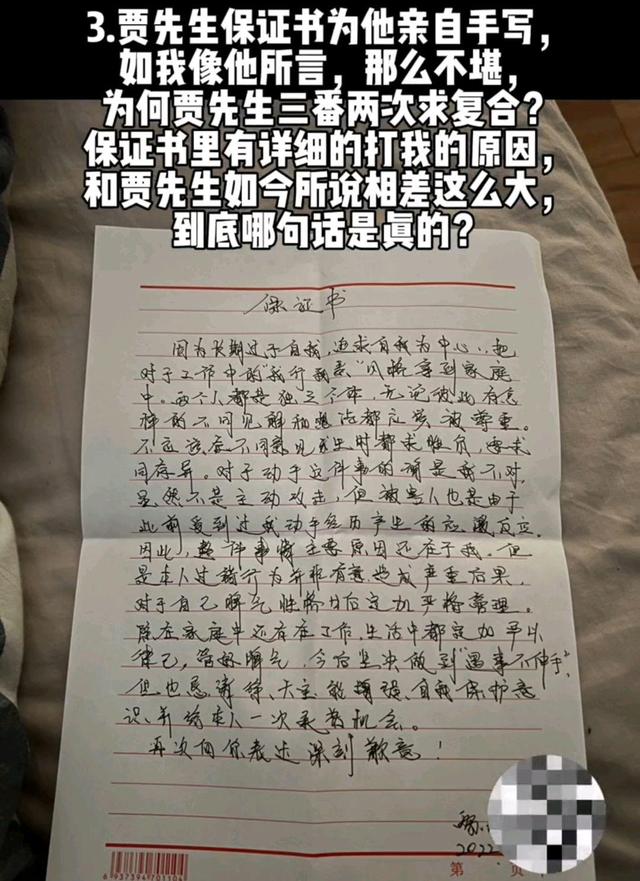 3.贾先生保证书为他亲自手写，
如我像他所言，那么不堪，
为何贾先生三番两次求复合？
保证书里有详细的打我的原因，
和贾先生如今所说相差这么大，
到底哪句话是真的？
保证书
因为长期过于自我，追求自我为中心，把
对于工作中的"我行我素"风格带到家庭
中。两个人都是独立个体，无论彼此有怎
样的不同见解和想法都应该被尊重。
不应该在不同意见发生时都求胜负，要求
同存异。对于动手这件事的确是我不对，
虽然不是主动攻击，但被害人也是由于
此前受到过我动手经历产生的应激反应。
因此，整件事情主要原因还在于我。但
是本人过错行为并非有意造成严重后果，
对于自己脾气性格今后定加严格管理。
除在家庭中还有在工作、生活中都定加予以
律己，管好脾气，今后坚决做到"遇事不伸手"，
但也恳请 能增强自我保护意
识、并给本人一次 机会。
再次向你表达深刻歉意！
2022
第 页
6937394701106